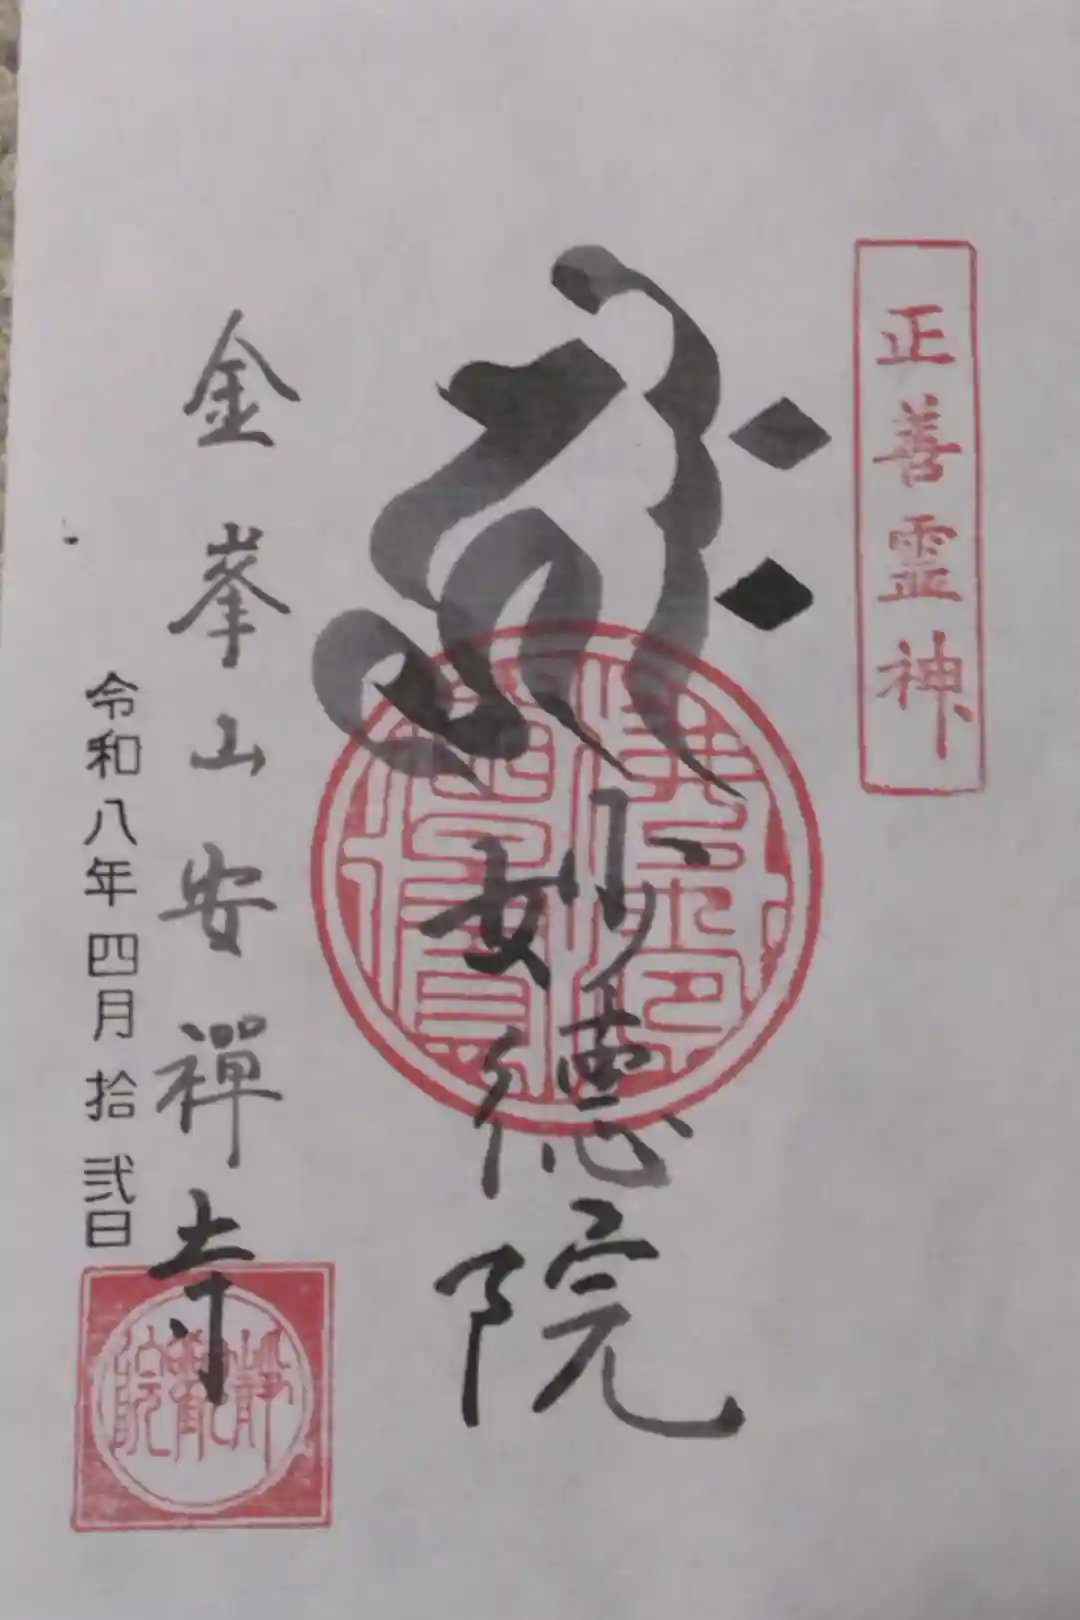 正善霊神
妙德院
金峯山安禅寺
令和八年四月拾弐日